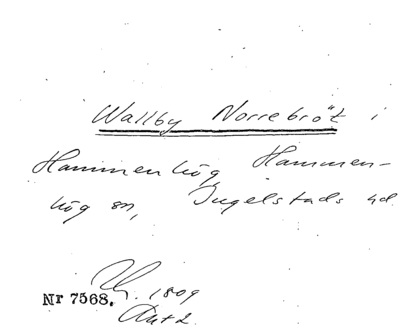 Wallby Norrebröt i
Hammenhög Hammen-
hög sn, Ingelstads hd
1809
Nr 7568.
Akt 2